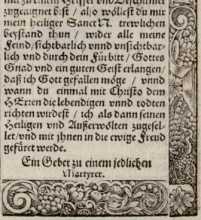 zugeaignet bist / also wöllest du mir
mein heiliger Sanct N. trewlichen
beystand thun / wider alle meine
Feind / sichtbarlich vnnd vnsichtbar-
lich vnd durch dein Fürbitt / Gottes
Gnad vnd ein guten Geist erlangen /
daß ich Gott gefallen möge / vnnd
wann du einmal mit Christo dem
HErren die lebendigen vnnd todten
richten würdest / ich als dann seinen
Heiligen vnd Außerwölten zugesel-
let / vnd mit jhnen in die ewige Freud
gefüret werde.
Ein Gebet zu einem jedlichen
Martyrer.